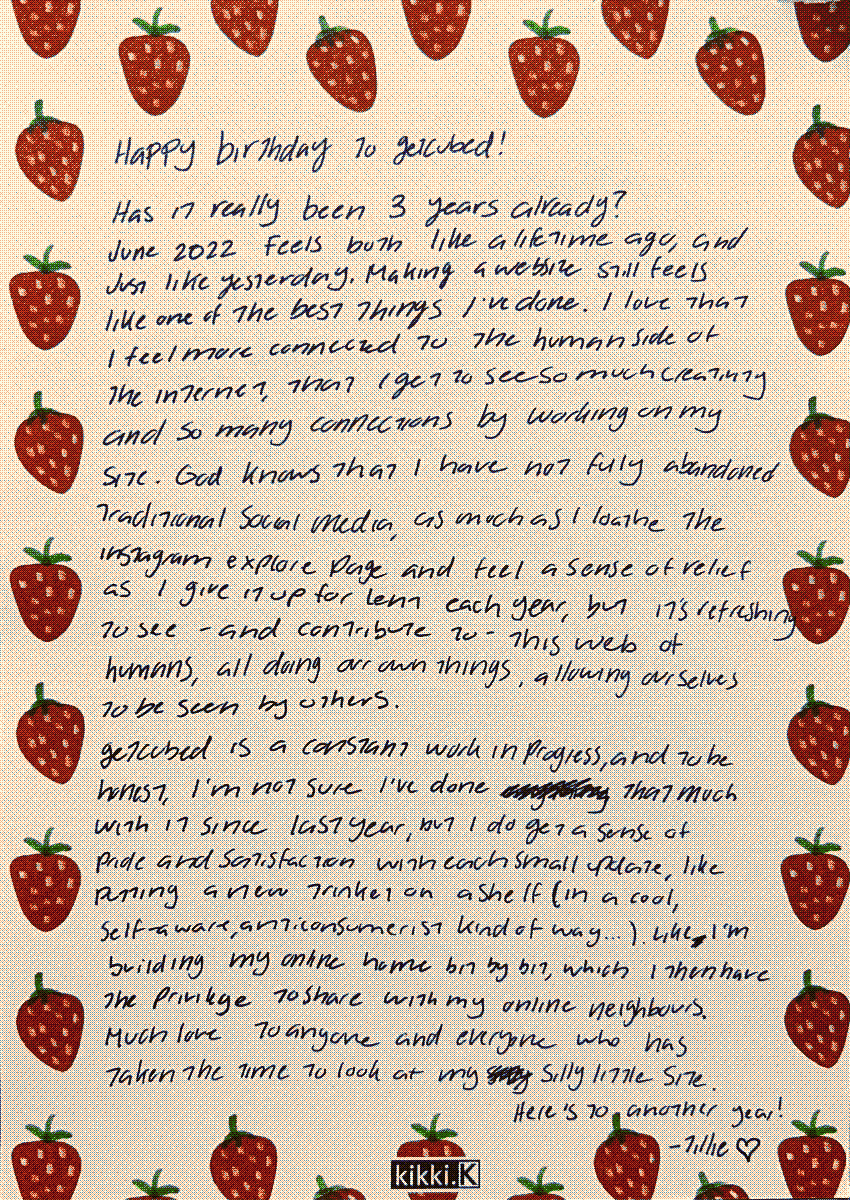 Happy birthday to getcubed!
Has it really been 3 years already?
June 2022 feels both like a lifetime ago, and
just like yesterday. Making a website still feels
like one of the best things I've done. I love that
I feel more connected to the human side of
the internet, that I get to see so much creativity
and so many connections by working on my
site. God knows that I have not fully abandoned
traditional social media, as much as I loathe the
instagram explore page and feel a sense of relief
as I give it up for Lent each year, but it's refreshing
to see - and contribute to - this web of
humans, all doing our own things, allowing ourselves
to be seen by others.
getcubed is a constant work in progress, and to be
honest, I'm not sure I've done that much
with it since last year, but I do get a sense of
pride and satisfaction with each small update, like
putting a new trinket on a shelf (in a cool,
self-aware, anticonsumerist kind of way...). Like, I'm
building my online home bit by bit, which I then have
the privilege to share with my online neighbours.
Much love to anyone and everyone who has
taken the time to look at my silly little site.
Here's to another year!
-Tillie ♡
kikki.K